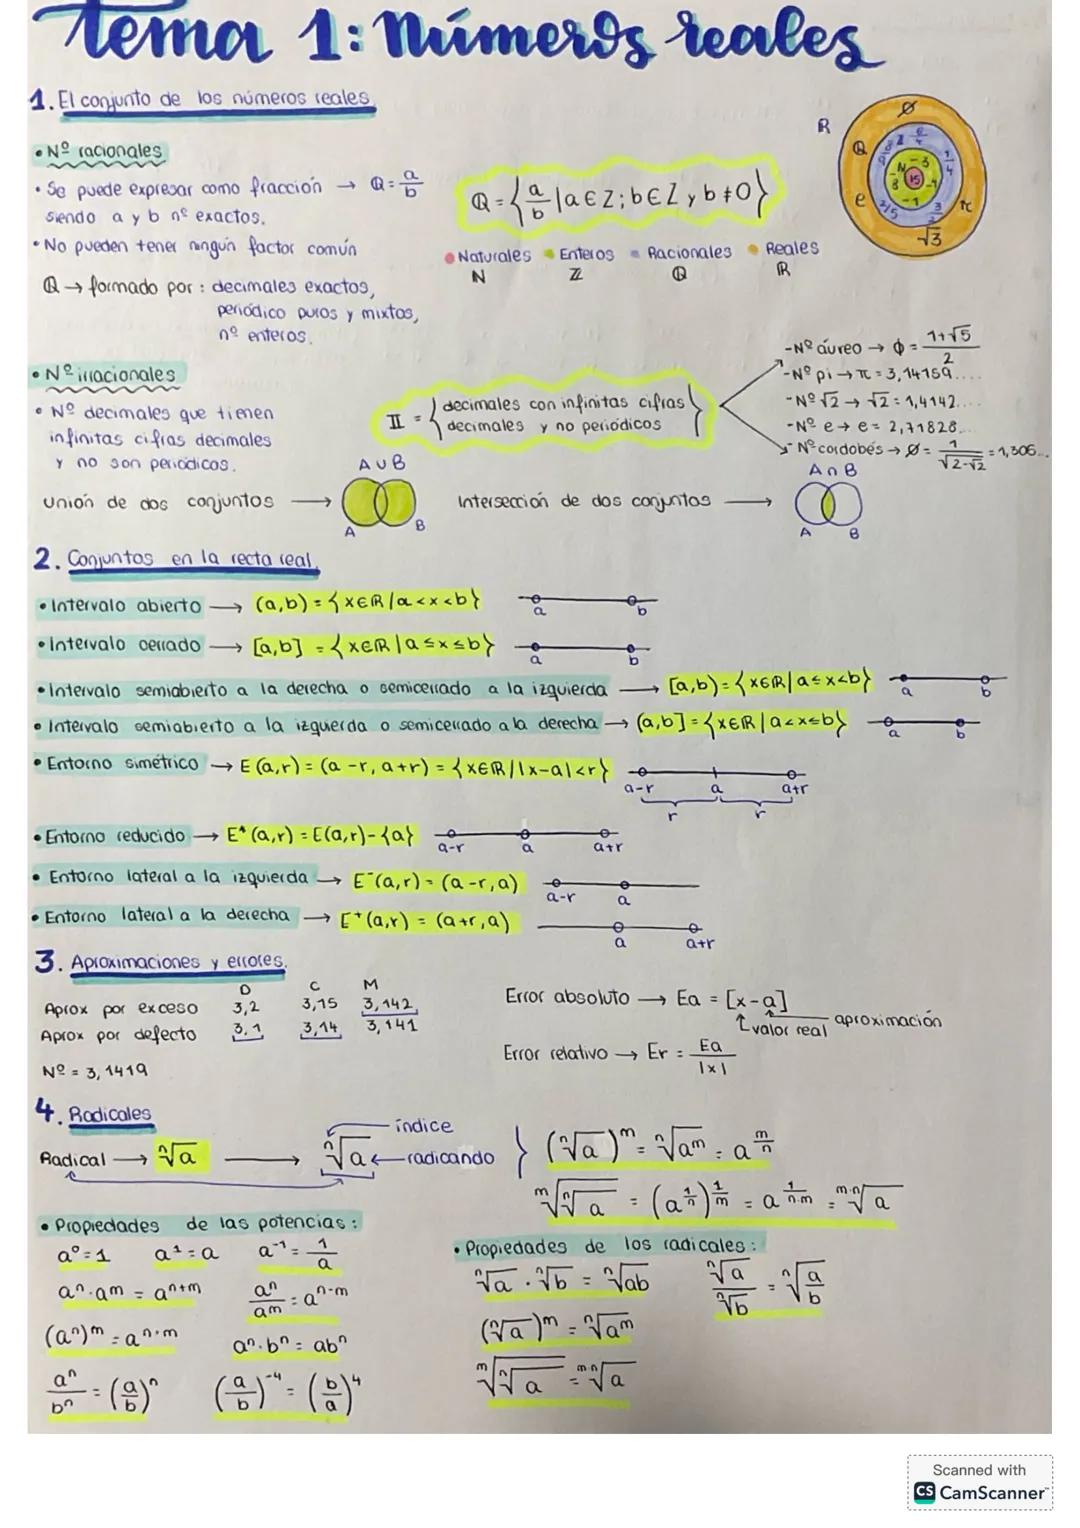 tema 1: Números reales
1. El conjunto de los números reales
• Nº racionales
• Se puede expresar como fracción → Q = a/b
siendo a y b nº exactos.
Q = { a/b | a ∈ Z ; b ∈ Z y b ≠ 0 }
• No pueden tener ningún factor común
• Naturales • Enteros • Racionales • Reales
N Z Q R
Q → formado por : decimales exactos,
periódico puros y mixtos,
nº enteros.
R
Q
e
Ø
π
√3
• Nº irracionales
• Nº decimales que tienen
infinitas cifras decimales
y no son periódicas.
II = { decimales con infinitas cifras
decimales y no periódicos }
- Nº áureo → Φ = 1+√5 / 2
- Nº pi → π = 3,14159....
- Nº √2 → √2 = 1,4142....
- Nº e → e = 2,71828...
- Nº cordobés → Ø = 1/√2-√2 = 1,306...
A ∪ B
Unión de dos conjuntos →
A B
A ∩ B
Intersección de dos conjuntos →
A B
2. Conjuntos en la recta real
• Intervalo abierto → (a,b) = { x ∈ R / a < x < b } a b
• Intervalo cerrado → [a,b] = { x ∈ R | a ≤ x ≤ b } a b
• Intervalo semiabierto a la derecha o semicerrado a la izquierda → [a,b) = { x ∈ R | a ≤ x < b } a b
• Intervalo semiabierto a la izquierda o semicerrado a la derecha → (a,b] = { x ∈ R | a < x ≤ b } a b
• Entorno simétrico → E (a,r) = (a - r, a + r) = { x ∈ R / | x - a | < r } a-r a a+r
r r
• Entorno reducido → E* (a,r) = E(a,r) - {a} a-r a a+r
• Entorno lateral a la izquierda → E⁻(a,r) = (a - r, a) a-r a
• Entorno lateral a la derecha → E⁺(a,r) = (a + r, a) a a+r
3. Aproximaciones y errores.
D C M
Aprox por exceso 3,2 3,15 3,142
Aprox por defecto 3.1 3,14 3,141
Nº = 3,1419
Error absoluto → Ea = [x - a]
valor real aproximación
Error relativo → Er = Ea / |x|
4. Radicales
Radical → ⁿ√a → ⁿ√a
índice
radicando
(ⁿ√a)ᵐ = ⁿ√aᵐ = a^(m/n)
ᵐ√ⁿ√a = (a^(1/n))^(1/m) = a^(1/n·m) = ᵐ·ⁿ√a
• Propiedades de las potencias :
a⁰ = 1 a¹ = a a⁻¹ = 1/a
aⁿ · aᵐ = aⁿ⁺ᵐ aⁿ/aᵐ = aⁿ⁻ᵐ
(aⁿ)ᵐ = aⁿ·ᵐ aⁿ · bⁿ = abⁿ
aⁿ/bⁿ = (a/b)ⁿ (a/b)⁻⁴ = (b/a)⁴
• Propiedades de los radicales :
ⁿ√a · ⁿ√b = ⁿ√ab ⁿ√a / ⁿ√b = ⁿ√(a/b)
(ⁿ√a)ᵐ = ⁿ√aᵐ
ᵐ√ⁿ√a = ᵐ·ⁿ√a
Scanned with
CS CamScanner